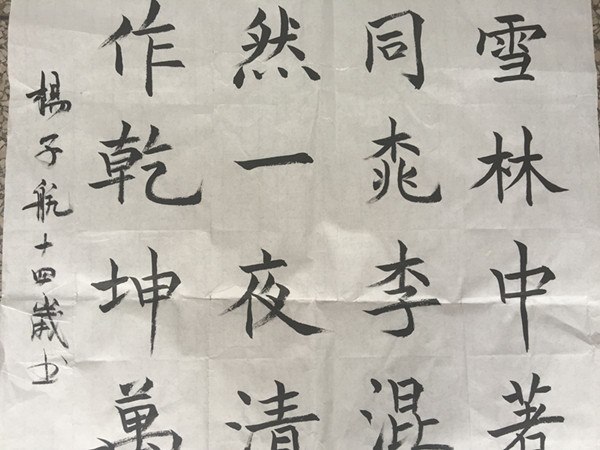 雪林中著
同桃李混
然一夜清
作乾坤萬
楊子航十四歲书